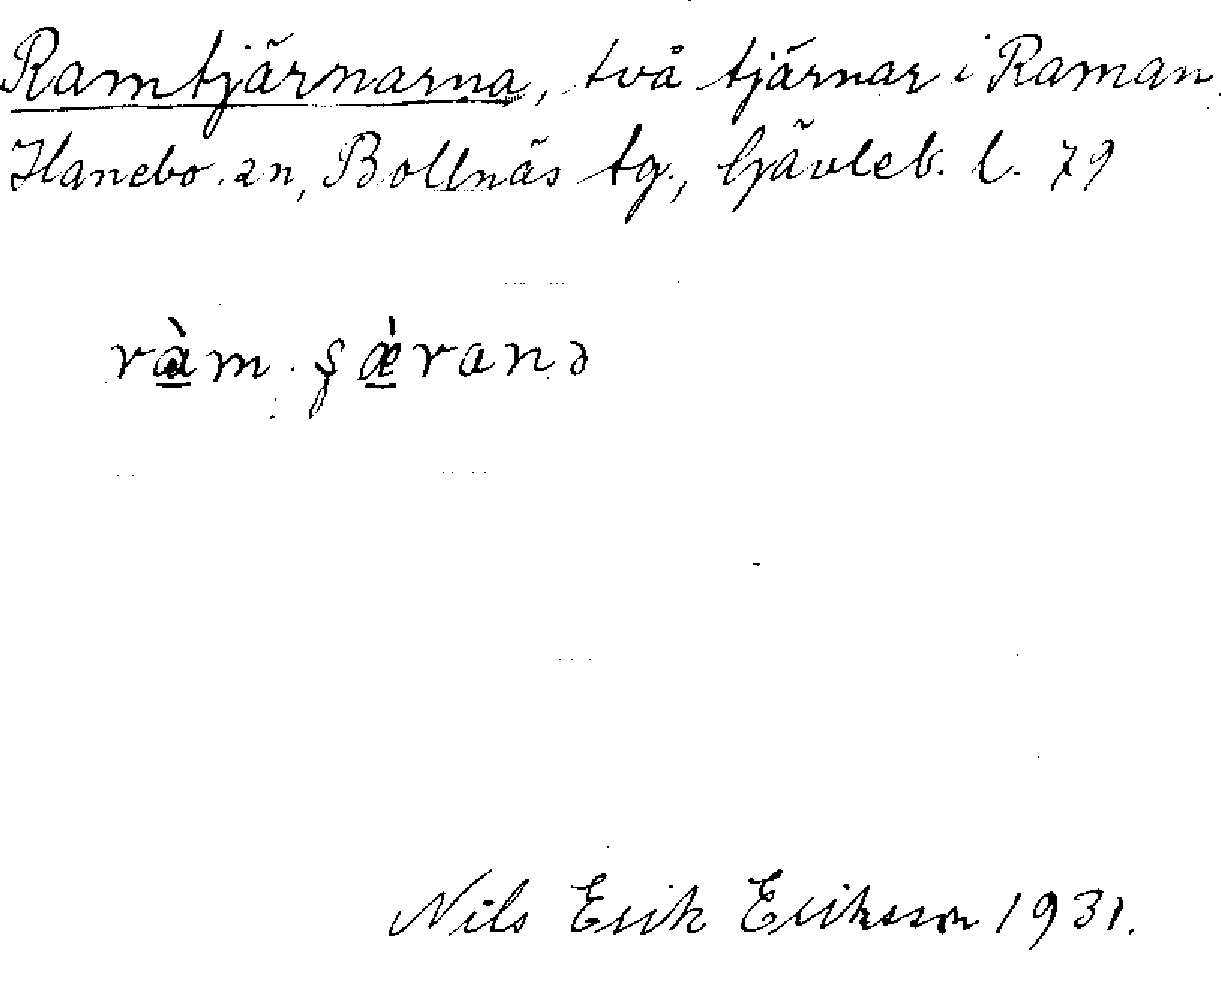 Ramtjärnarna, två tjärnar i Raman,
Hanebo sn, Bollnäs tg., Gävleb. l. 79
ràm ʂæ̀ranə
Nils Erik Eriksson 1931.